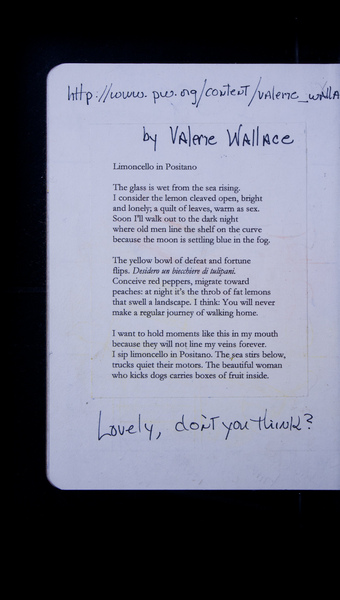 http://www.pw.org/content/valerie_walla
by Valerie Wallace
Limoncello in Positano
The glass is wet from the sea rising.
I consider the lemon cleaved open, bright
and lonely; a quilt of leaves, warm as sex.
Soon I'll walk out to the dark night
where old men line the shelf on the curve
because the moon is settling blue in the fog.
The yellow bowl of defeat and fortune
flips. Desidero un biechiere di tulipani.
Conceive red peppers, migrate toward
peaches: at night it's the throb of fat lemons
that swell a landscape. I think: You will never
make a regular journey of walking home.
I want to hold moments like this in my mouth
because they will not line my veins forever.
I sip limoncello in Positano. The sea stirs below,
trucks quiet their motors. The beautiful woman
who kicks dogs carries boxes of fruit inside.
Lovely, don't you think?